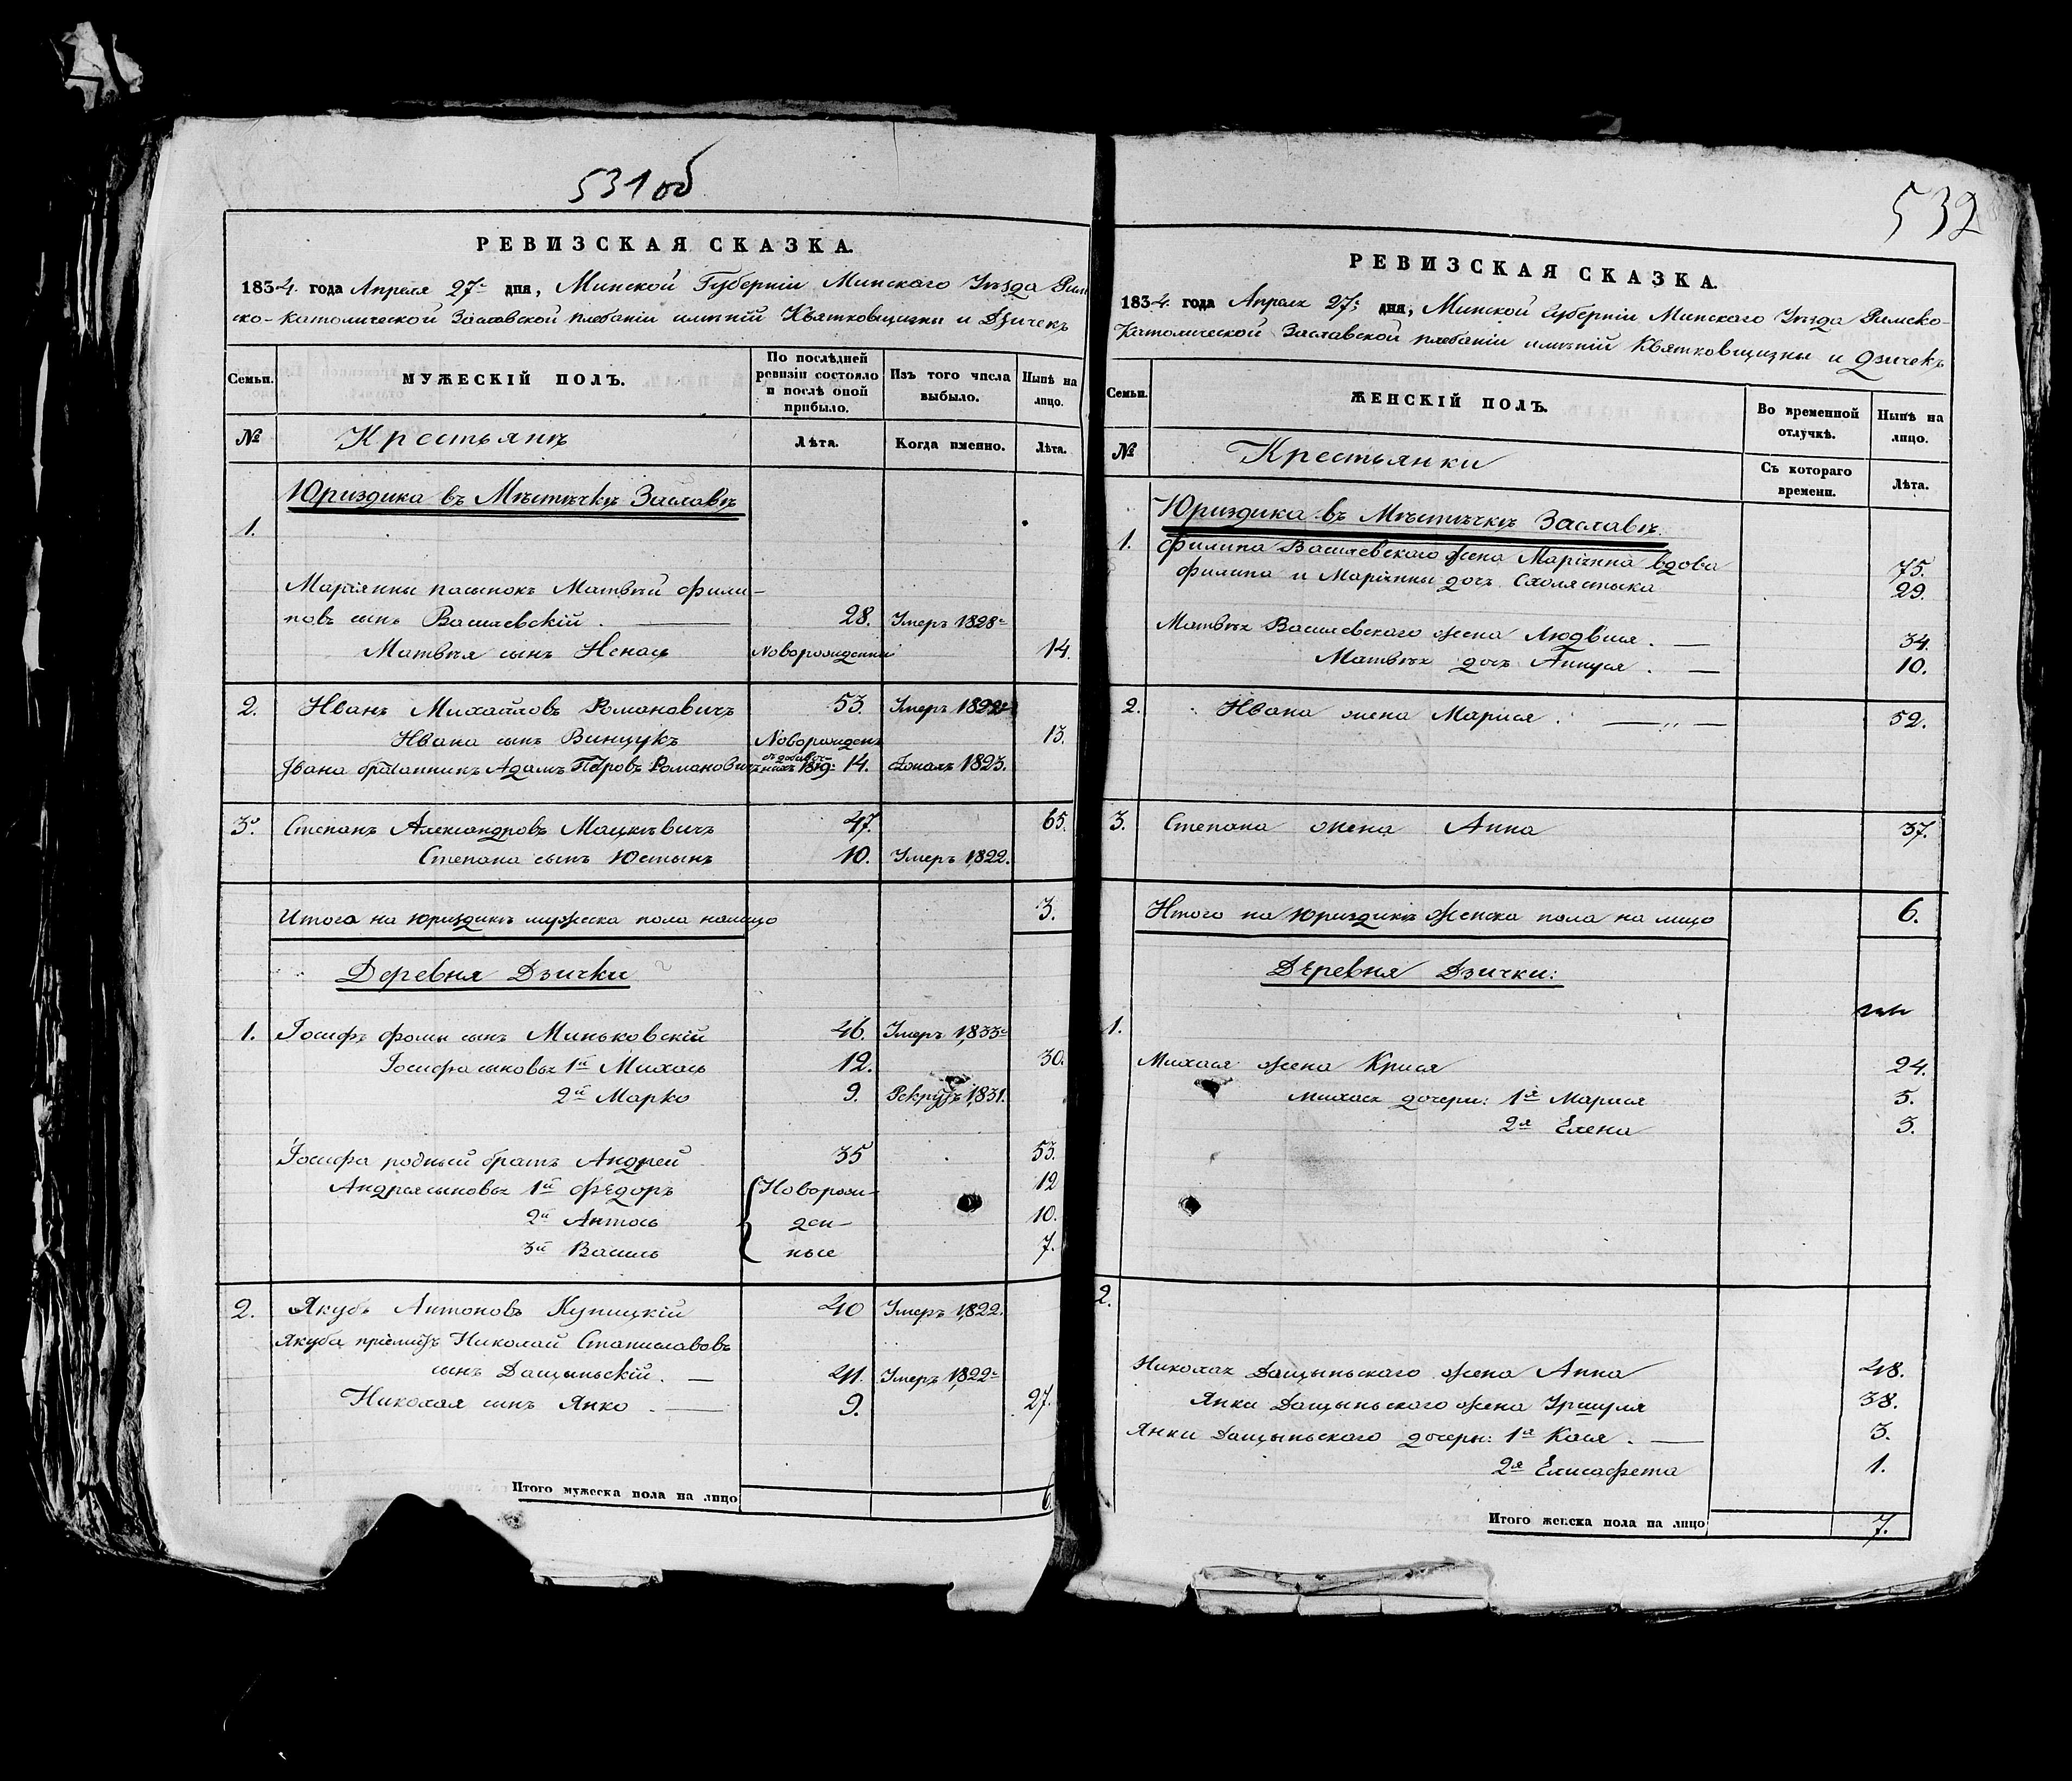 531 об
РЕВИЗСКАЯ СКАЗКА.
1834. года Апреля 27 дня, Минской Губерніи Минскаго Уѣзда Рим
ско-Католической Заславской плебаніи имѣній Квятковщизны и Дзичекъ
Семьи.
МУЖЕСКІЙ ПОЛЪ.
По послѣдней
ревизіи состояло
и послѣ оной
прибыло.
Изъ того числа
выбыло.
Нынѣ на
лицо.
№
Крестьянѣ
Лѣта.
Когда именно.
Лѣта.
Юриздика въ Мѣстечкѣ Заславѣ
1.
Маріянны пасынокъ Матвѣй Фили-
повъ сынъ Василевскій. 28. Умеръ 1828
Матвѣя сынъ Игнась Новорожденны 14.
2. Иванъ Михайловъ Романовичъ 53. Умеръ
Ивана сынъ Винцукъ Новорожден 13.
Ивана братанникъ Адамъ Петровъ Романовичъ 1819: 14. 1823.
3. Степанъ Александровъ Мацкевичъ 47. 65.
Степана сынъ Юстынъ 10. Умеръ 1822.
Итого на юриздикѣ мужеска пола налицо 3.
Деревня Дзички
1. Іосифъ Фомы сынъ Миньковскій 46. Умеръ 1833
Іосифа сыновья 1й Михась 12. 30.
2й Марко 9. Рекрутъ 1831.
Іосифа родный братъ Андрей 35 53.
Андрея сыновья 1й Федоръ Новорож- 12
2й Антось ден- 10.
3й Василь ные 7.
2. Якубъ Антоновъ Купицкій 40 Умеръ 1822.
Якуба пріемышъ Николай Станиславовъ
сынъ Дащыньскій. 41. Умеръ 1822
Николая сынъ Янко 9. 27.
Итого мужеска пола на лицо 6
532
РЕВИЗСКАЯ СКАЗКА.
1834. года Апреля 27 дня, Минской Губерніи Минскаго Уѣзда Римско-
Католической Заславской плебаніи имѣній Квятковщизны и Дзичекъ
Семьи.
ЖЕНСКІЙ ПОЛЪ.
Во временной
отлучкѣ.
Нынѣ на
лицо.
№
Крестьянки
Съ котораго
времени.
Лѣта.
Юриздика въ Мѣстечкѣ Заславѣ.
1. Филипа Василевскаго жена Маріянна вдова 75.
Филипа и Маріянны дочь Схолястыка 29.
Матвѣя Василевскаго жена Людвися. 34.
Матвѣя дочь Аннуся. 10.
2. Ивана жена Марися. 52.
3. Степана жена Анна 37.
Итого на юриздикѣ женска пола на лицо 6.
Деревня Дзички:
1.
Михася жена Крися 24.
Михася дочери: 1я Марися 5.
2я Елена 3.
2.
Николая Дащыньскаго жена Анна 48.
Янки Дащыньскаго жена Уршуля 38.
Янки Дащыньскаго дочери: 1я Кася. 3.
2я Елисафета 1.
Итого женска пола на лицо 7.